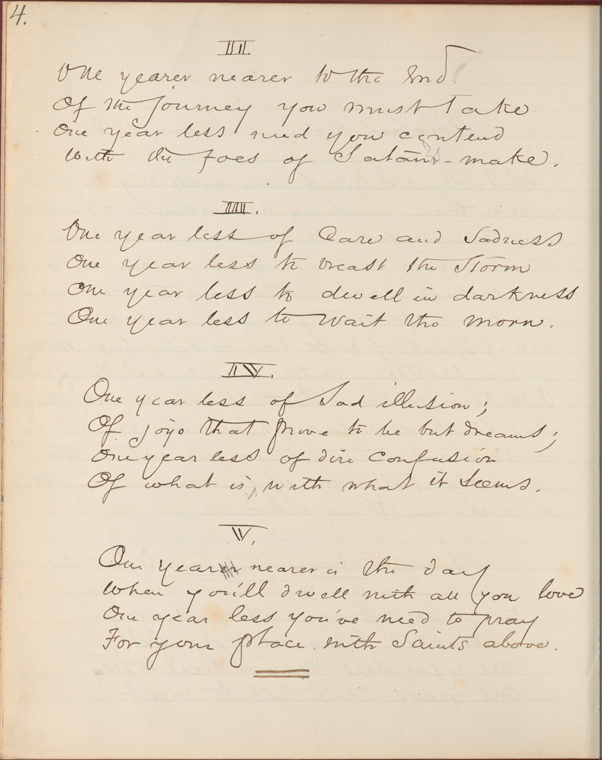 4.
III
One yearer nearer to the End
Of the journey you must take
One year less need you contend
With the foes of Satan's make.
III.
One year less of Care and Sadness
One year less to breast the Storm
One year less to dwell in darkness
One year less to wait the morn.
IV.
One year less of Sad illusion;
Of joys that prove to be but dreams;
One year less of dire confusion
Of what is, with what it seems.
V.
One year nearer is the day
When you'll dwell with all you love
One year less you've need to pray
For your place with Saints above.